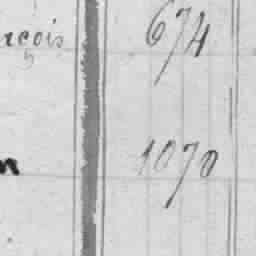 rçois 674
1070